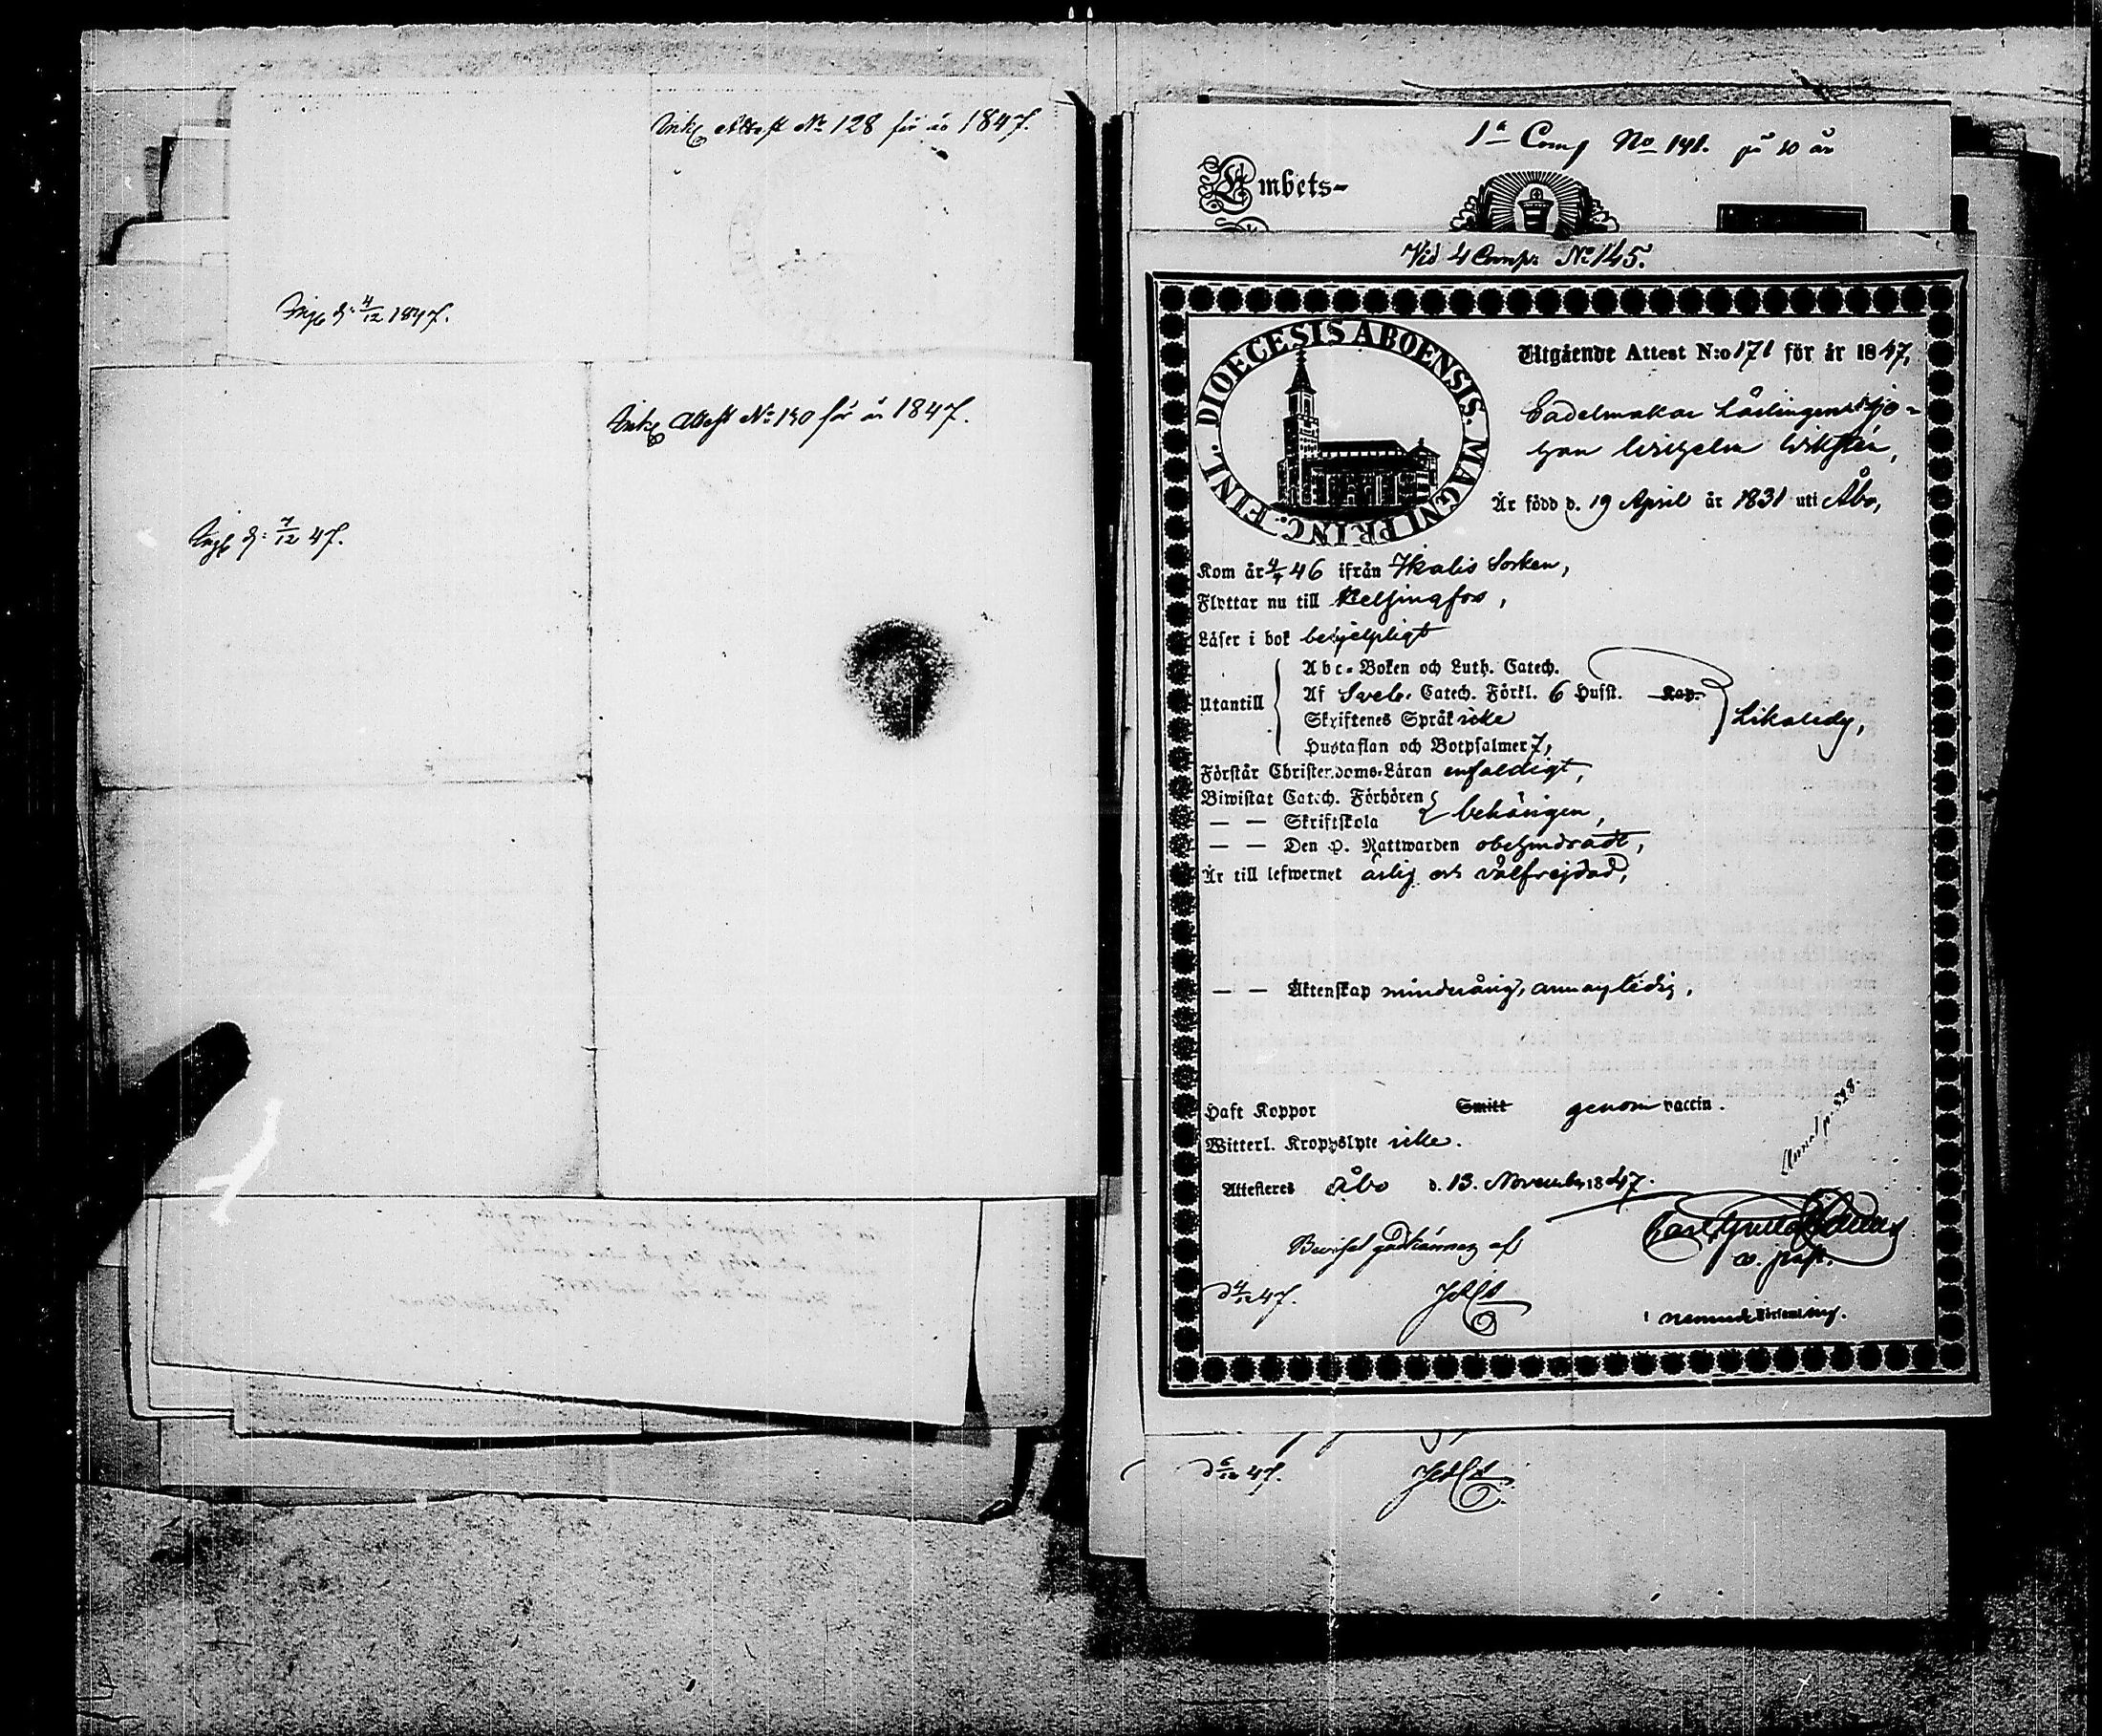 Ink. Attest No 128 för år 1847.
Ing. d: 4/12 1847.
Ink. Attest No 140 för år 1847.
Ing. d: 7/12 47.
1a Comp No 141. på 10 år
Embets-
Vid 4 Comp: No 145.
DIOECESIS ABOENSIS. MAGNI PRINC. FINL.
Utgående Attest N:o 171 för år 1847,
Sadelmakar Lärlingen Jo-
han Wilhelm Wikstén,
Är född d. 19 April år 1831 uti Åbo,
Kom år 46 ifrån Ikalis Socken,
Flyttar nu till Helsingfors,
Läser i bok behjelpligt
Utantill
Abc-Boken och Luth. Catech.
Af Sveb. Catech. Förkl. 6 Hufst. Kap.
Skriftenes Språk icke
Likaledes,
Hustaflan och Botpsalmer 7,
Förstår Christendoms-Läran enfaldigt,
Biwistat Catech. Förhören
— — Skriftskola
behörigen,
— — Den H. Nattwarden obehindradt,
Är till lefwernet ärlig och välfrejdad,
— — Äktenskap minderårig, ledig,
Haft Koppor Smitt genom vaccin.
Witterl. Kroppslyte icke.
Annot. p. 528.
Attesteres Åbo d. 13. November 1847.
Beviset godkännes af
Carl
v. past.
d 4/12 47.
i nemnde Församling.
d 6/12 47.